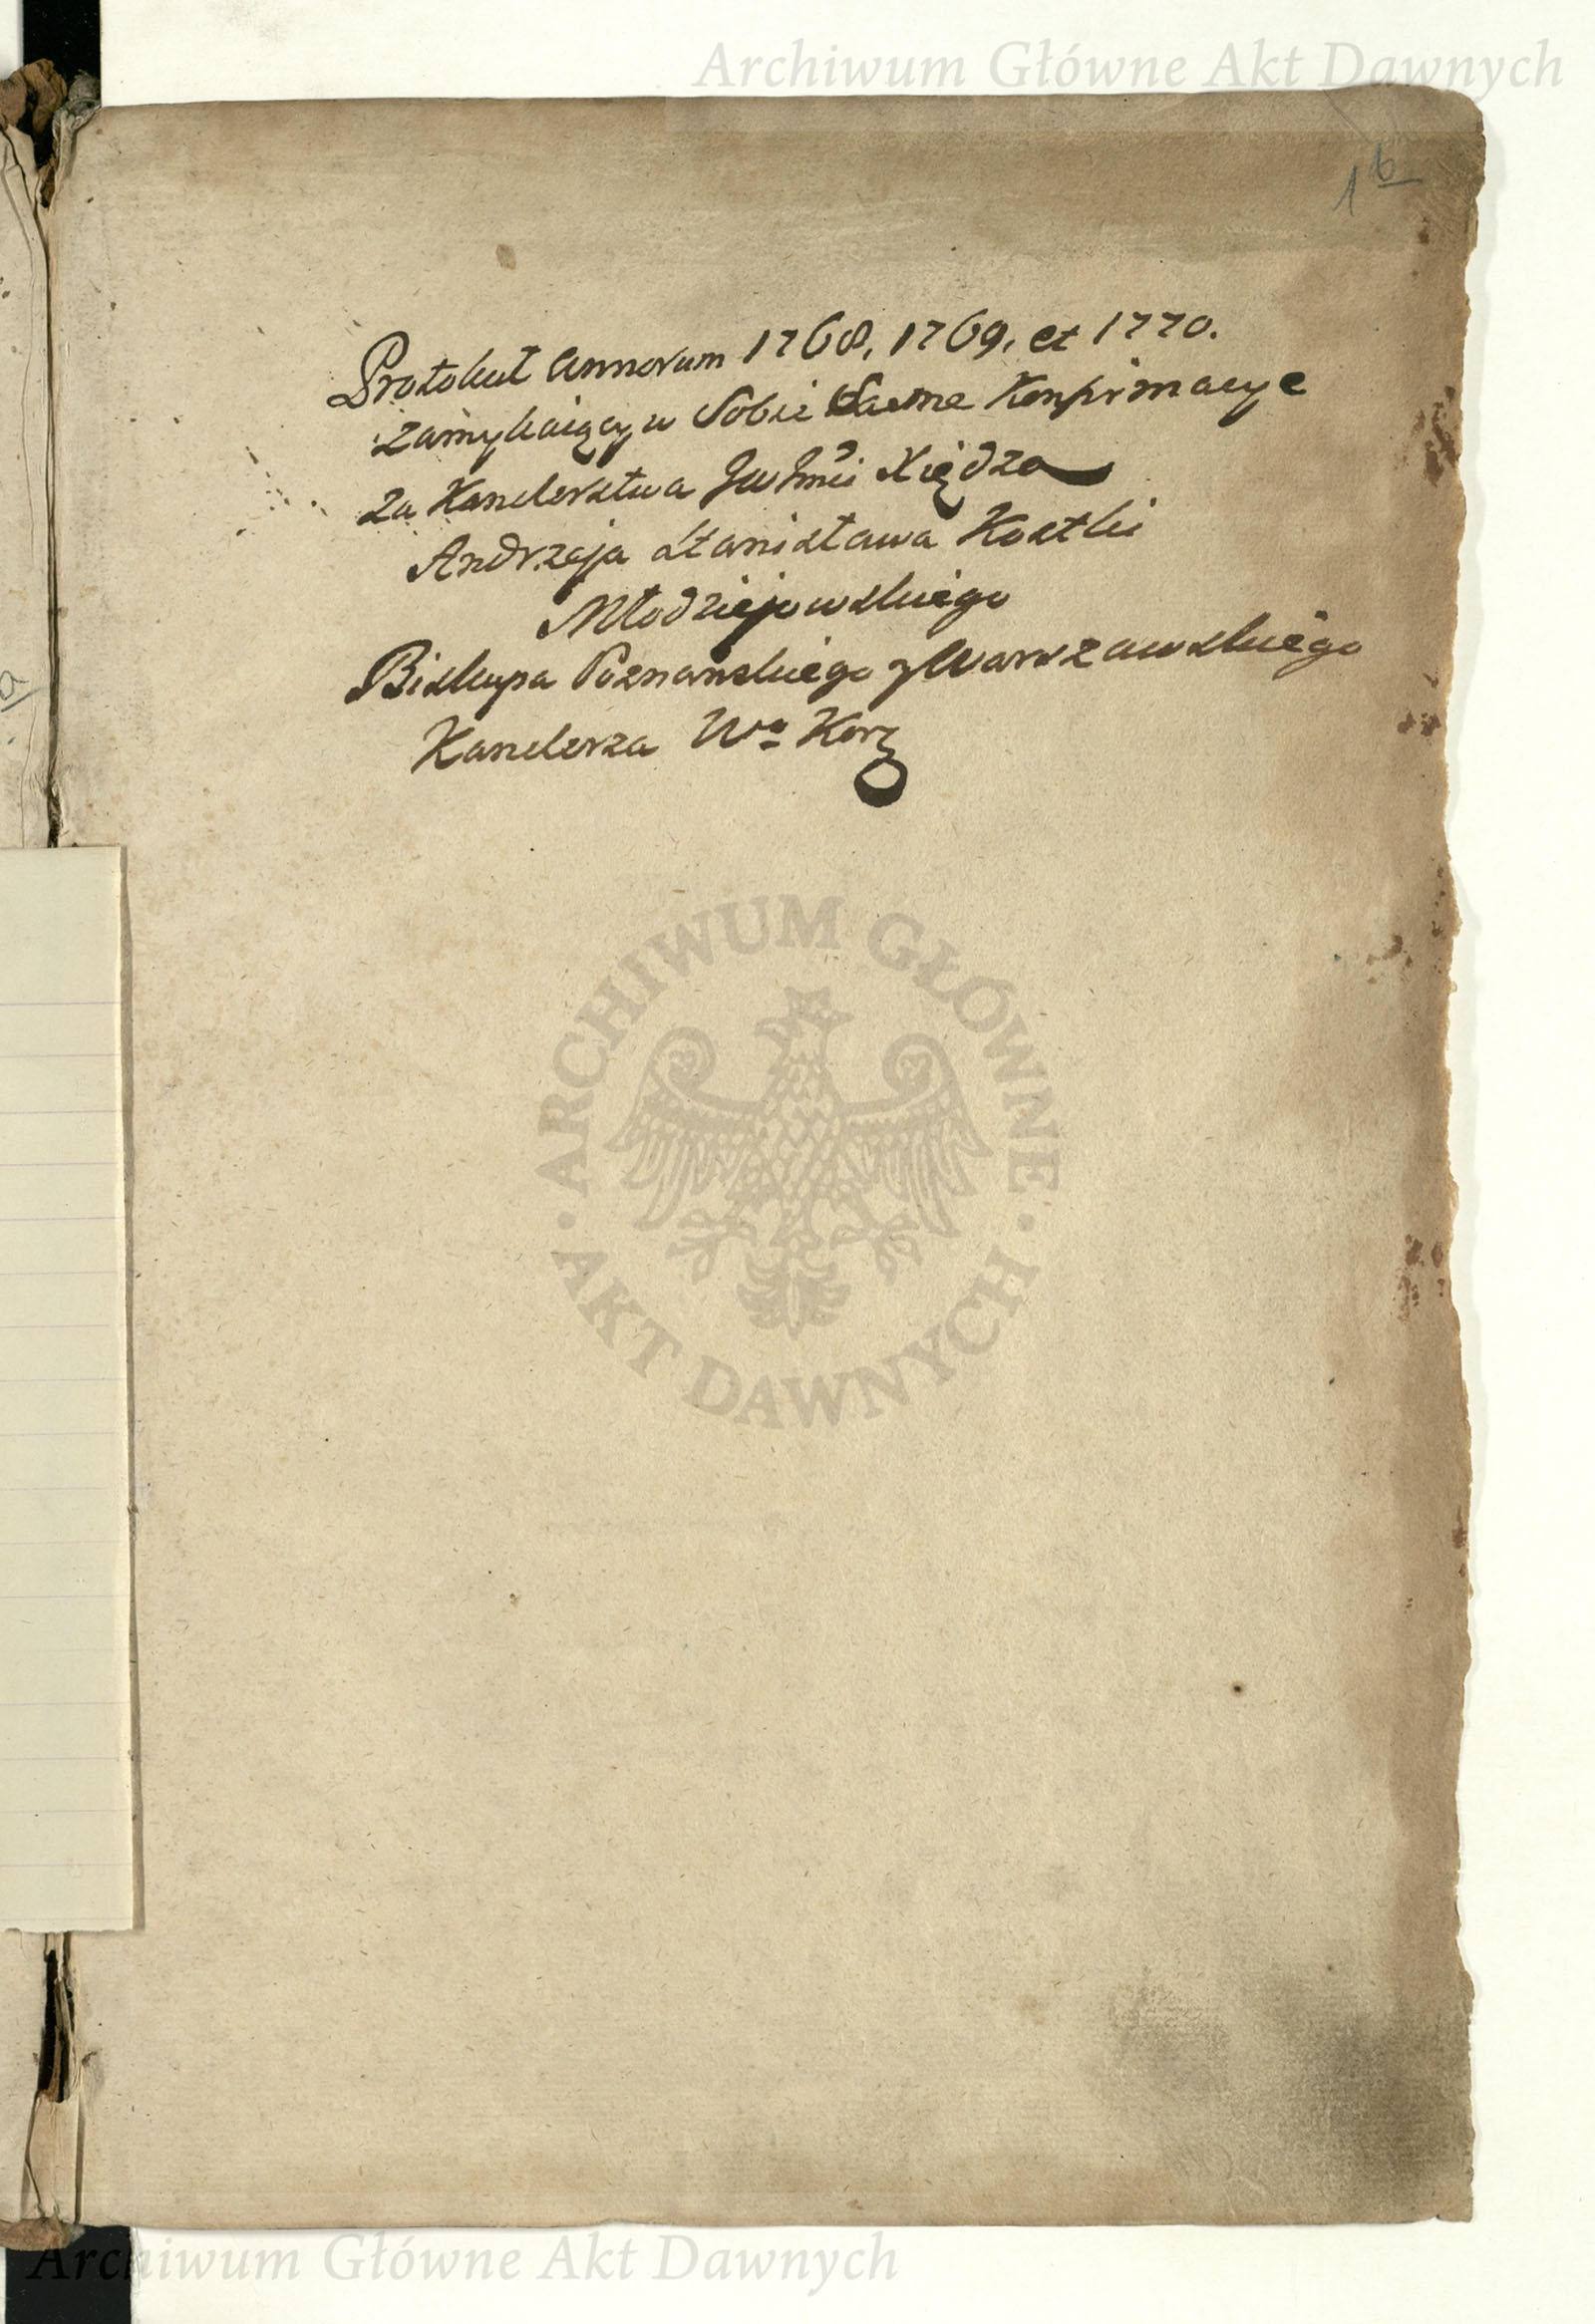 Archiwum Główne Akt Dawnych
1 b
Protokuł Annorum 1768, 1769, et 1770.
zamykaiący w Sobie Same Konfirmacye
za Kanclerstwa Jwhmći Xiędza
Andrzeja Stanisława Kostki
Młodziejowskiego
Biskupa Poznanskiego y Warszawskiego
Kanclerza Wo Kor
a
ARCHIWUM GŁÓWNE
· AKT DAWNYCH ·
Archiwum Główne Akt Dawnych